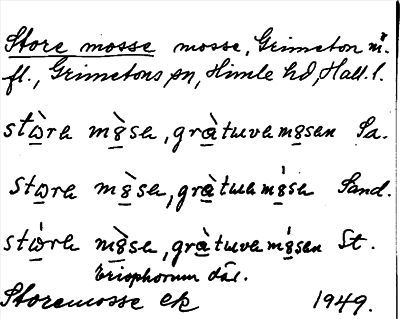 Store mosse mosse, Grimeton m.
fl., Grimetons sn, Himle hd, Hall. l.
stὼrə mòsə, gràtuvəmosən Sa.
stωrə mòsə, gràtuəmósə Sand.
stώrə mòsə, gràtuvəmósən St.
Eriophorum där.
Storemosse ek 1949.